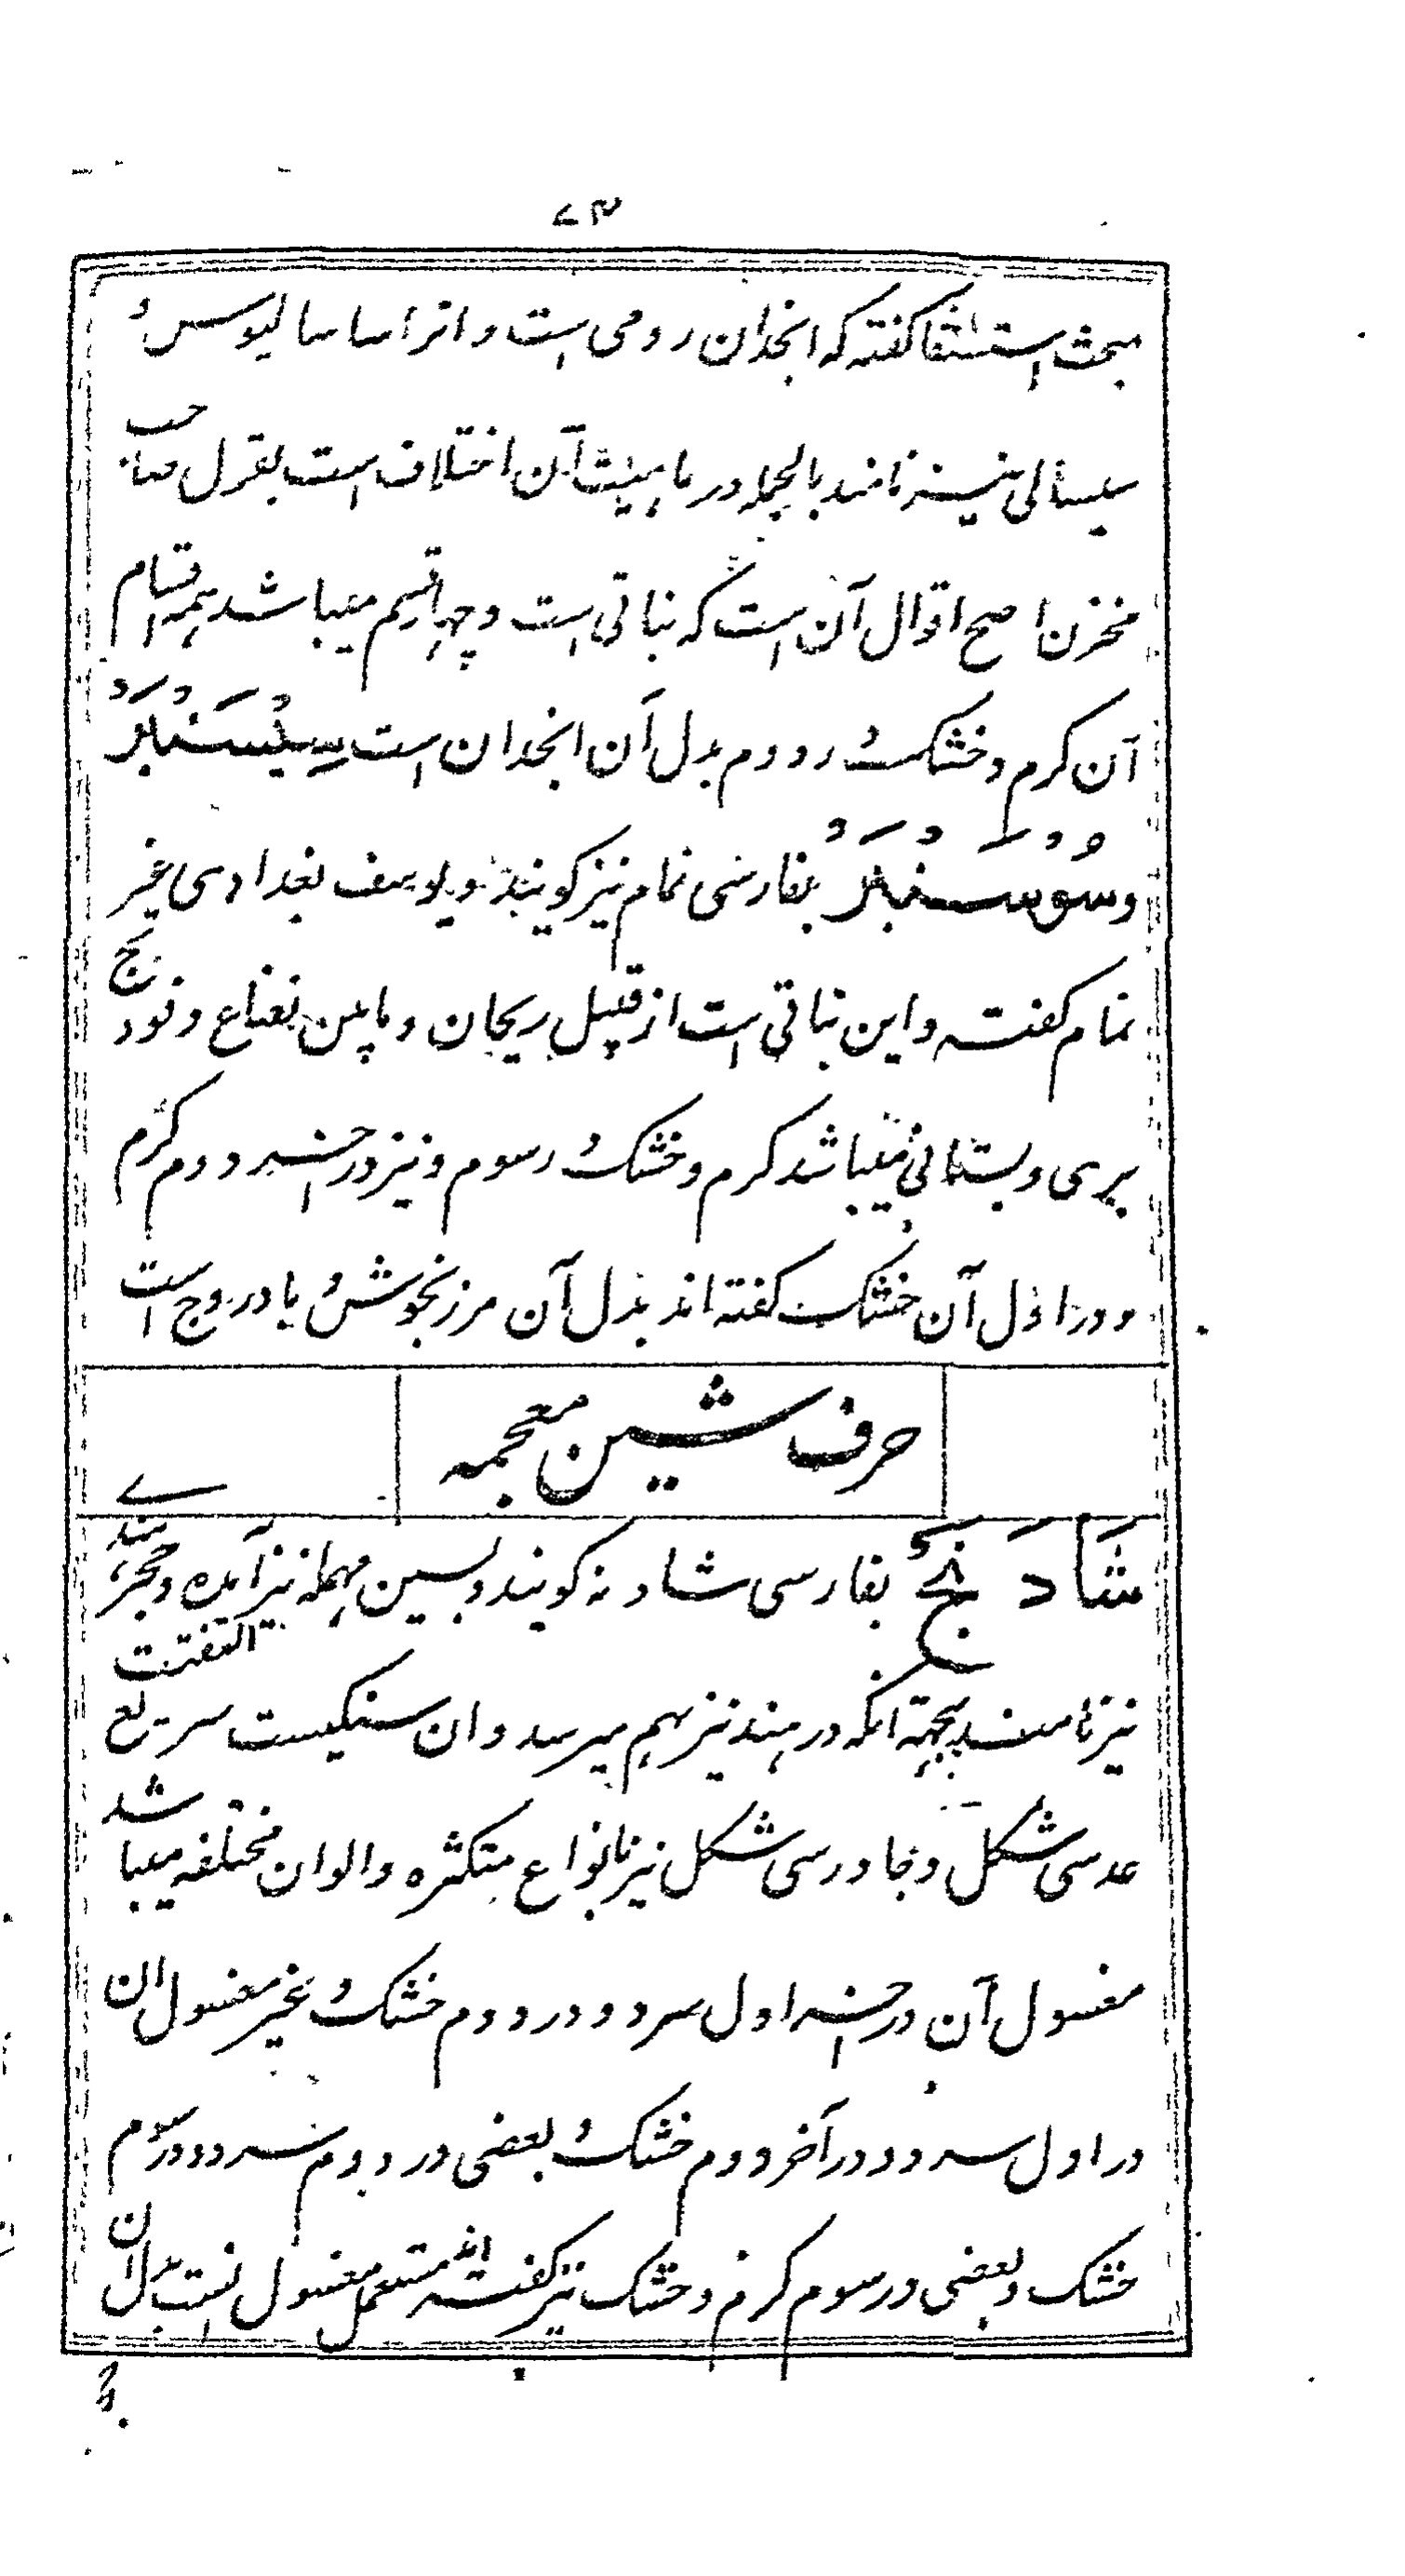 ۷۳
مبحث استسقا گفته که انجدان رومی است و انرا ساسالیوس و
سیسالی نیز نامند بالجمله در ماهیت آن اختلاف است بقول صاحب
مخزن اصح اقوال آن است که نباتی است و چهار قسم میباشد همه اقسام
آن گرم و خشک در دوم بدل آن انجدان است سِیسَنْبَرْ
و سُوسَنْبَرْ بفارسی نمام نیز گویند و یوسف بغدادی غیر
نمام گفته و این نباتی است از قبیل ریحان و مابین نعناع و فودنج
بری و بستانی میباشد گرم و خشک در سوم و نیز در اخر دوم گرم
و در اول آن خشک گفته اند بدل آن مرزنجوش و بادروج است
حرف شین معجمه
شَادَنَجْ بفارسی شادنه گویند و بسین مهمله نیز آمده و حجر هندے
نیز نامند بجهة انکه در هند نیز بهم میرسد و ان سنگیست سریع التفتت
عدسی شکل و جاورسی شکل نیز بانواع متکثره و الوان مختلفه میباشد
مغسول آن در اخر اول سرد و در دوم خشک و غیر مغسول ان
در اول سرد و در آخر دوم خشک و بعضی در دوم سرد و در سوم
خشک و بعضی در سوم گرم و خشک نیز گفته اند مستعمل مغسول است بدل ان